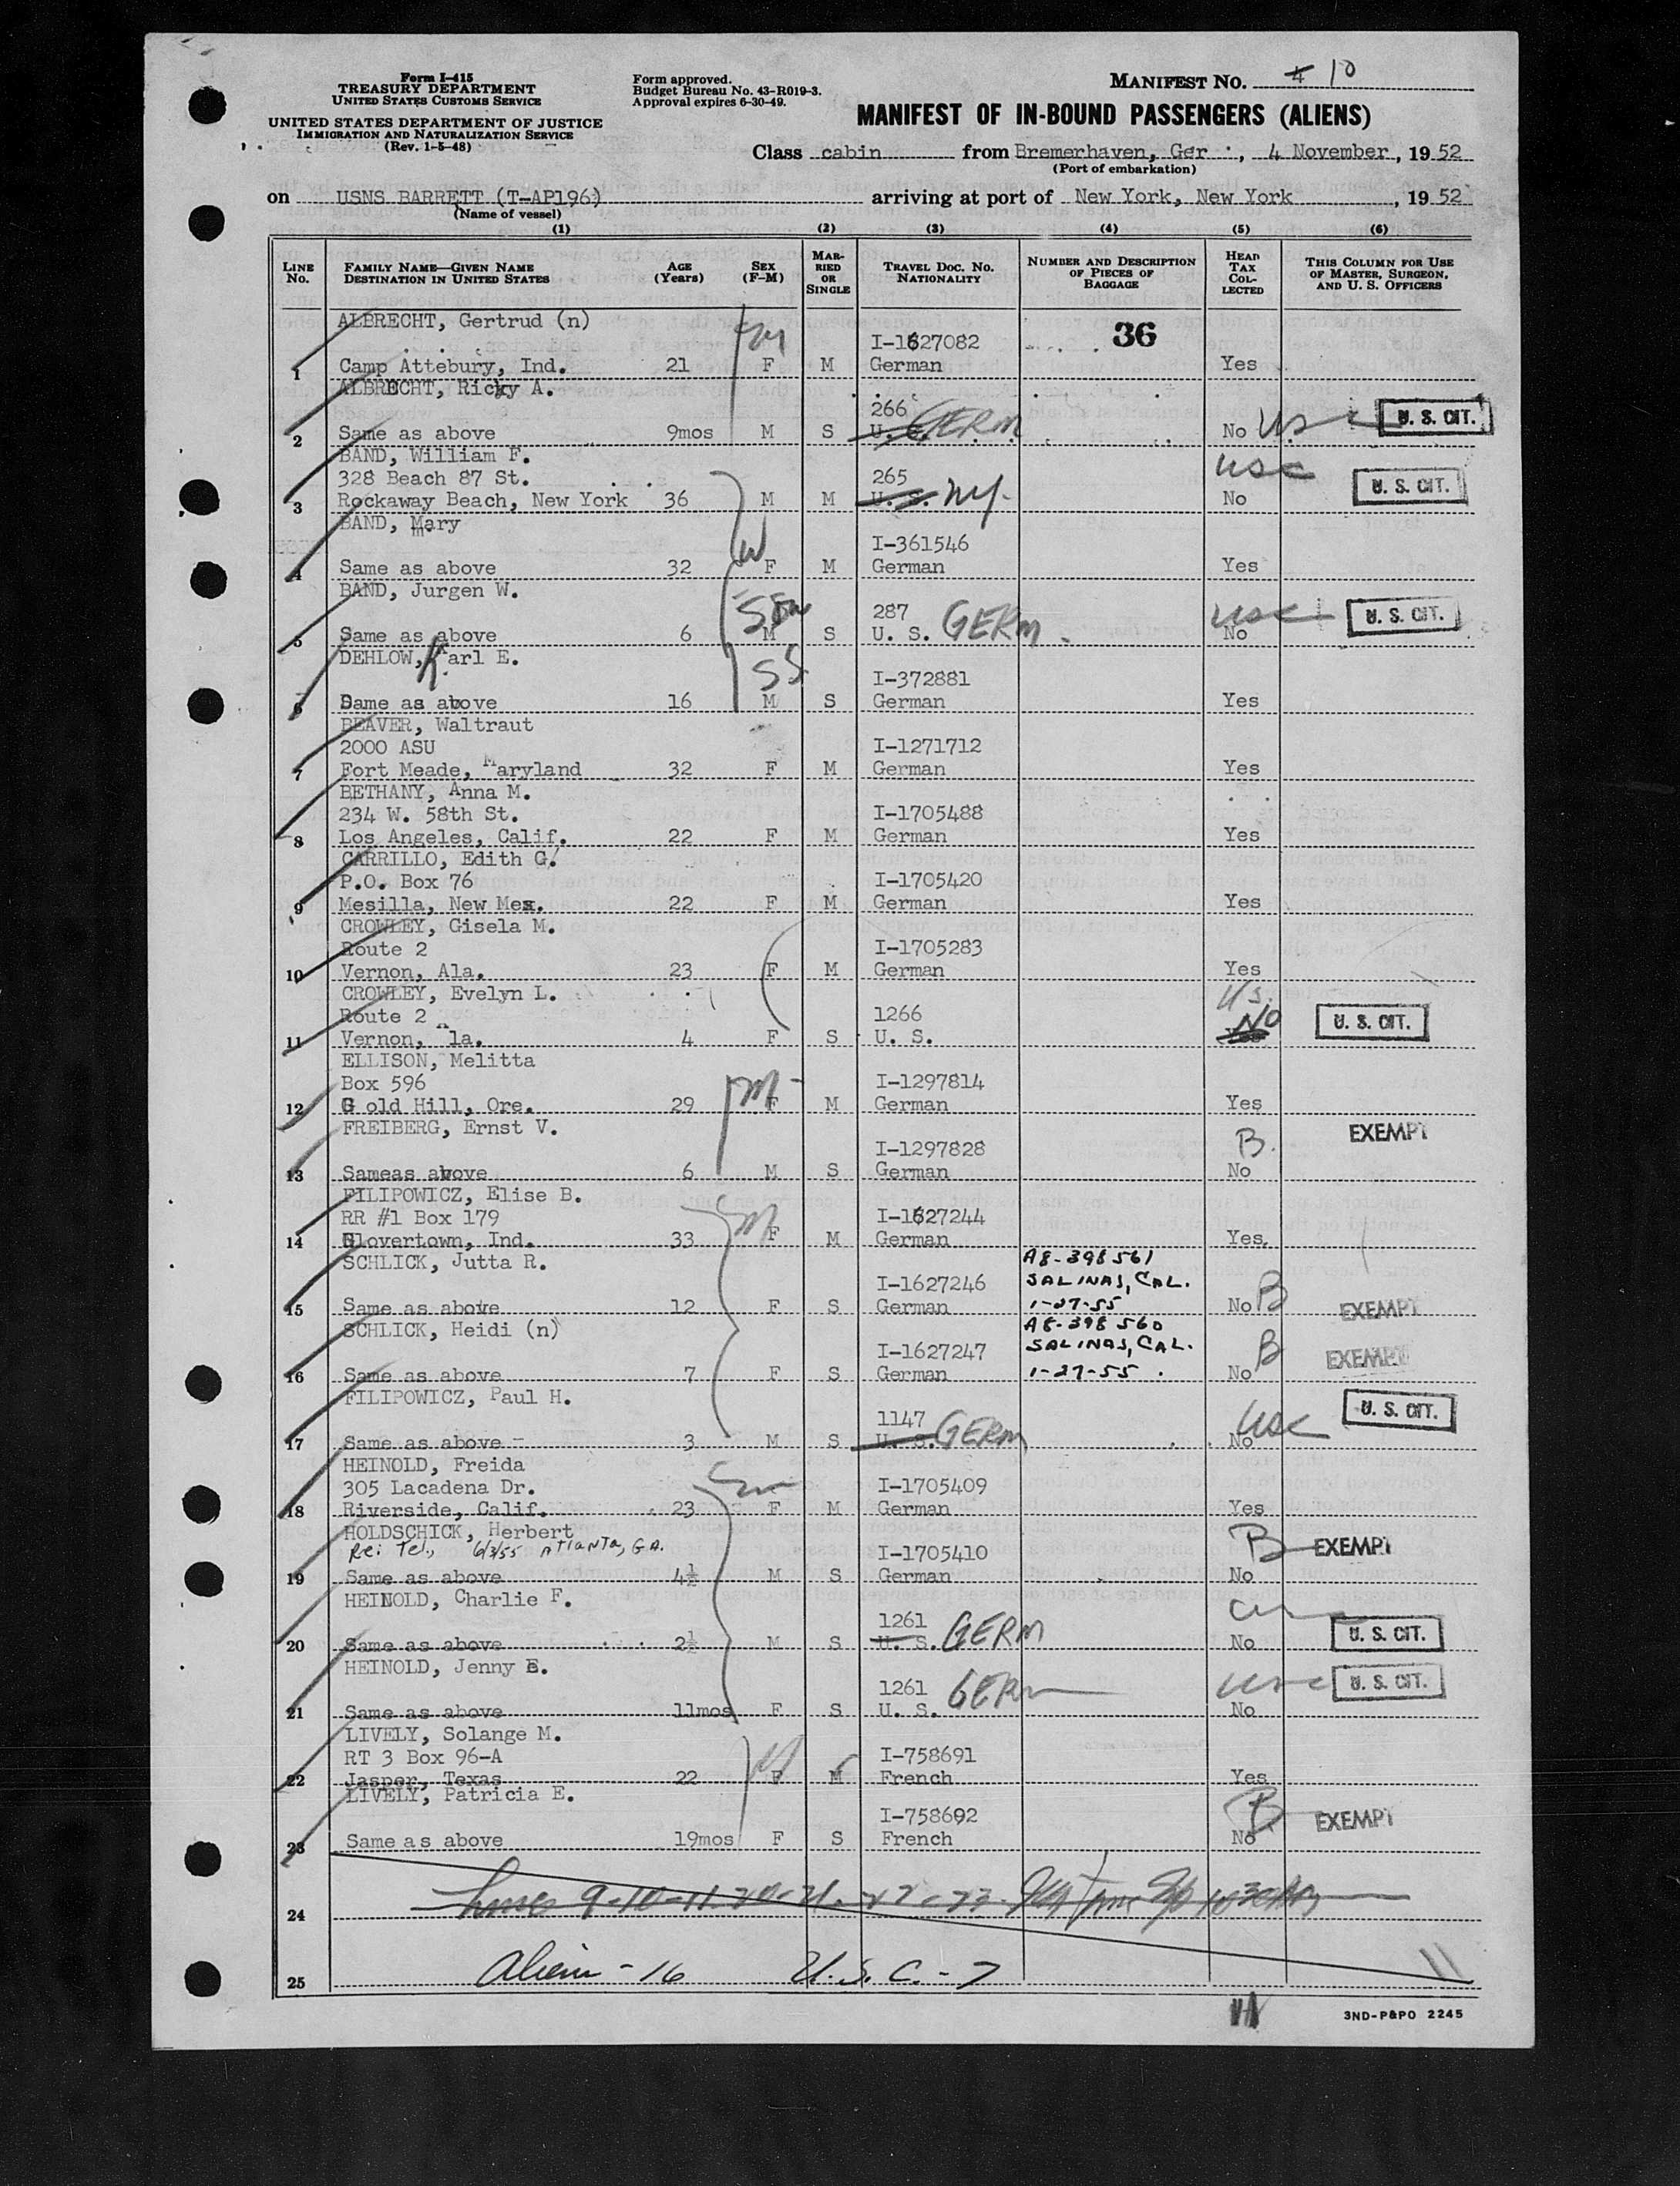 Form I-415
TREASURY DEPARTMENT
UNITED STATES CUSTOMS SERVICE
UNITED STATES DEPARTMENT OF JUSTICE
IMMIGRATION AND NATURALIZATION SERVICE
(Rev. 1-5-48)
Form approved.
Budget Bureau No. 43-R019-3.
Approval expires 6-30-49.
MANIFEST NO. 10
MANIFEST OF IN-BOUND PASSENGERS (ALIENS)
Class cabin from Bremerhaven, Ger., 4 November, 1952
(Port of embarkation)
on USNS BARRETT (T-AP196) arriving at port of New York, New York, 1952
(Name of vessel)
(1) (2) (3) (4) (5) (6)
LINE No. FAMILY NAME—GIVEN NAME DESTINATION IN UNITED STATES AGE (Years) SEX (F-M) MARRIED OR SINGLE TRAVEL DOC. NO. NATIONALITY NUMBER AND DESCRIPTION OF PIECES OF BAGGAGE HEAD TAX COLLECTED THIS COLUMN FOR USE OF MASTER, SURGEON, AND U. S. OFFICERS
ALBRECHT, Gertrud (n)
I-1627082 36
1 Camp Attebury, Ind. 21 F M German Yes
ALBRECHT, Ricky A.
266 GERM
2 Same as above 9mos M S U. S. No USC U. S. CIT.
BAND, William F.
328 Beach 87 St. 265 USC
3 Rockaway Beach, New York 36 M M U. S. NY. No U. S. CIT.
BAND, Mary
I-361546
4 Same as above 32 F M German Yes
BAND, Jurgen W.
287 USC
5 Same as above 6 M S U. S. GERM No U. S. CIT.
DEHLOW, Karl E.
I-372881
6 Same as above 16 M S German Yes
BEAVER, Waltraut
2000 ASU I-1271712
7 Fort Meade, Maryland 32 F M German Yes
BETHANY, Anna M.
234 W. 58th St. I-1705488
8 Los Angeles, Calif. 22 F M German Yes
CARRILLO, Edith G.
P.O. Box 76 I-1705420
9 Mesilla, New Mex. 22 F M German Yes
CROWLEY, Gisela M.
Route 2 I-1705283
10 Vernon, Ala. 23 F M German Yes
CROWLEY, Evelyn L. US.
Route 2 1266 No
11 Vernon, Ala. 4 F S U. S. U. S. CIT.
ELLISON, Melitta
Box 596 I-1297814
12 Gold Hill, Ore. 29 F M German Yes
FREIBERG, Ernst V.
I-1297828 B. EXEMPT
13 Sameas above 6 M S German No
FILIPOWICZ, Elise B.
RR #1 Box 179 I-1627244
14 Glovertown, Ind. 33 F M German Yes
SCHLICK, Jutta R. A8-398561
I-1627246 SALINAS, CAL.
15 Same as above 12 F S German 1-27-55 No B EXEMPT
SCHLICK, Heidi (n) A8-398560
I-1627247 SALINAS, CAL. B
16 Same as above 7 F S German 1-27-55 No EXEMPT
FILIPOWICZ, Paul H.
1147 USC
17 Same as above 3 M S U. S. GERM No U. S. CIT.
HEINOLD, Freida
305 Lacadena Dr. I-1705409
18 Riverside, Calif. 23 F M German Yes
HOLDSCHICK, Herbert
Re: Tel., 6/3/55 Atlanta, GA. I-1705410 B EXEMPT
19 Same as above 4½ M S German No
HEINOLD, Charlie F.
1261
20 Same as above 2½ M S U. S. GERM No U. S. CIT.
HEINOLD, Jenny E.
1261 GERM USC
21 Same as above 11mos F S U. S. No U. S. CIT.
LIVELY, Solange M.
RT 3 Box 96-A I-758691
22 Jasper, Texas 22 F M French Yes
LIVELY, Patricia E.
I-758692 B EXEMPT
23 Same as above 19mos F S French No
24 Lines 9-10-11-20-21-22-23
25 Alien - 16 U.S.C. - 7
3ND-P&PO 2245